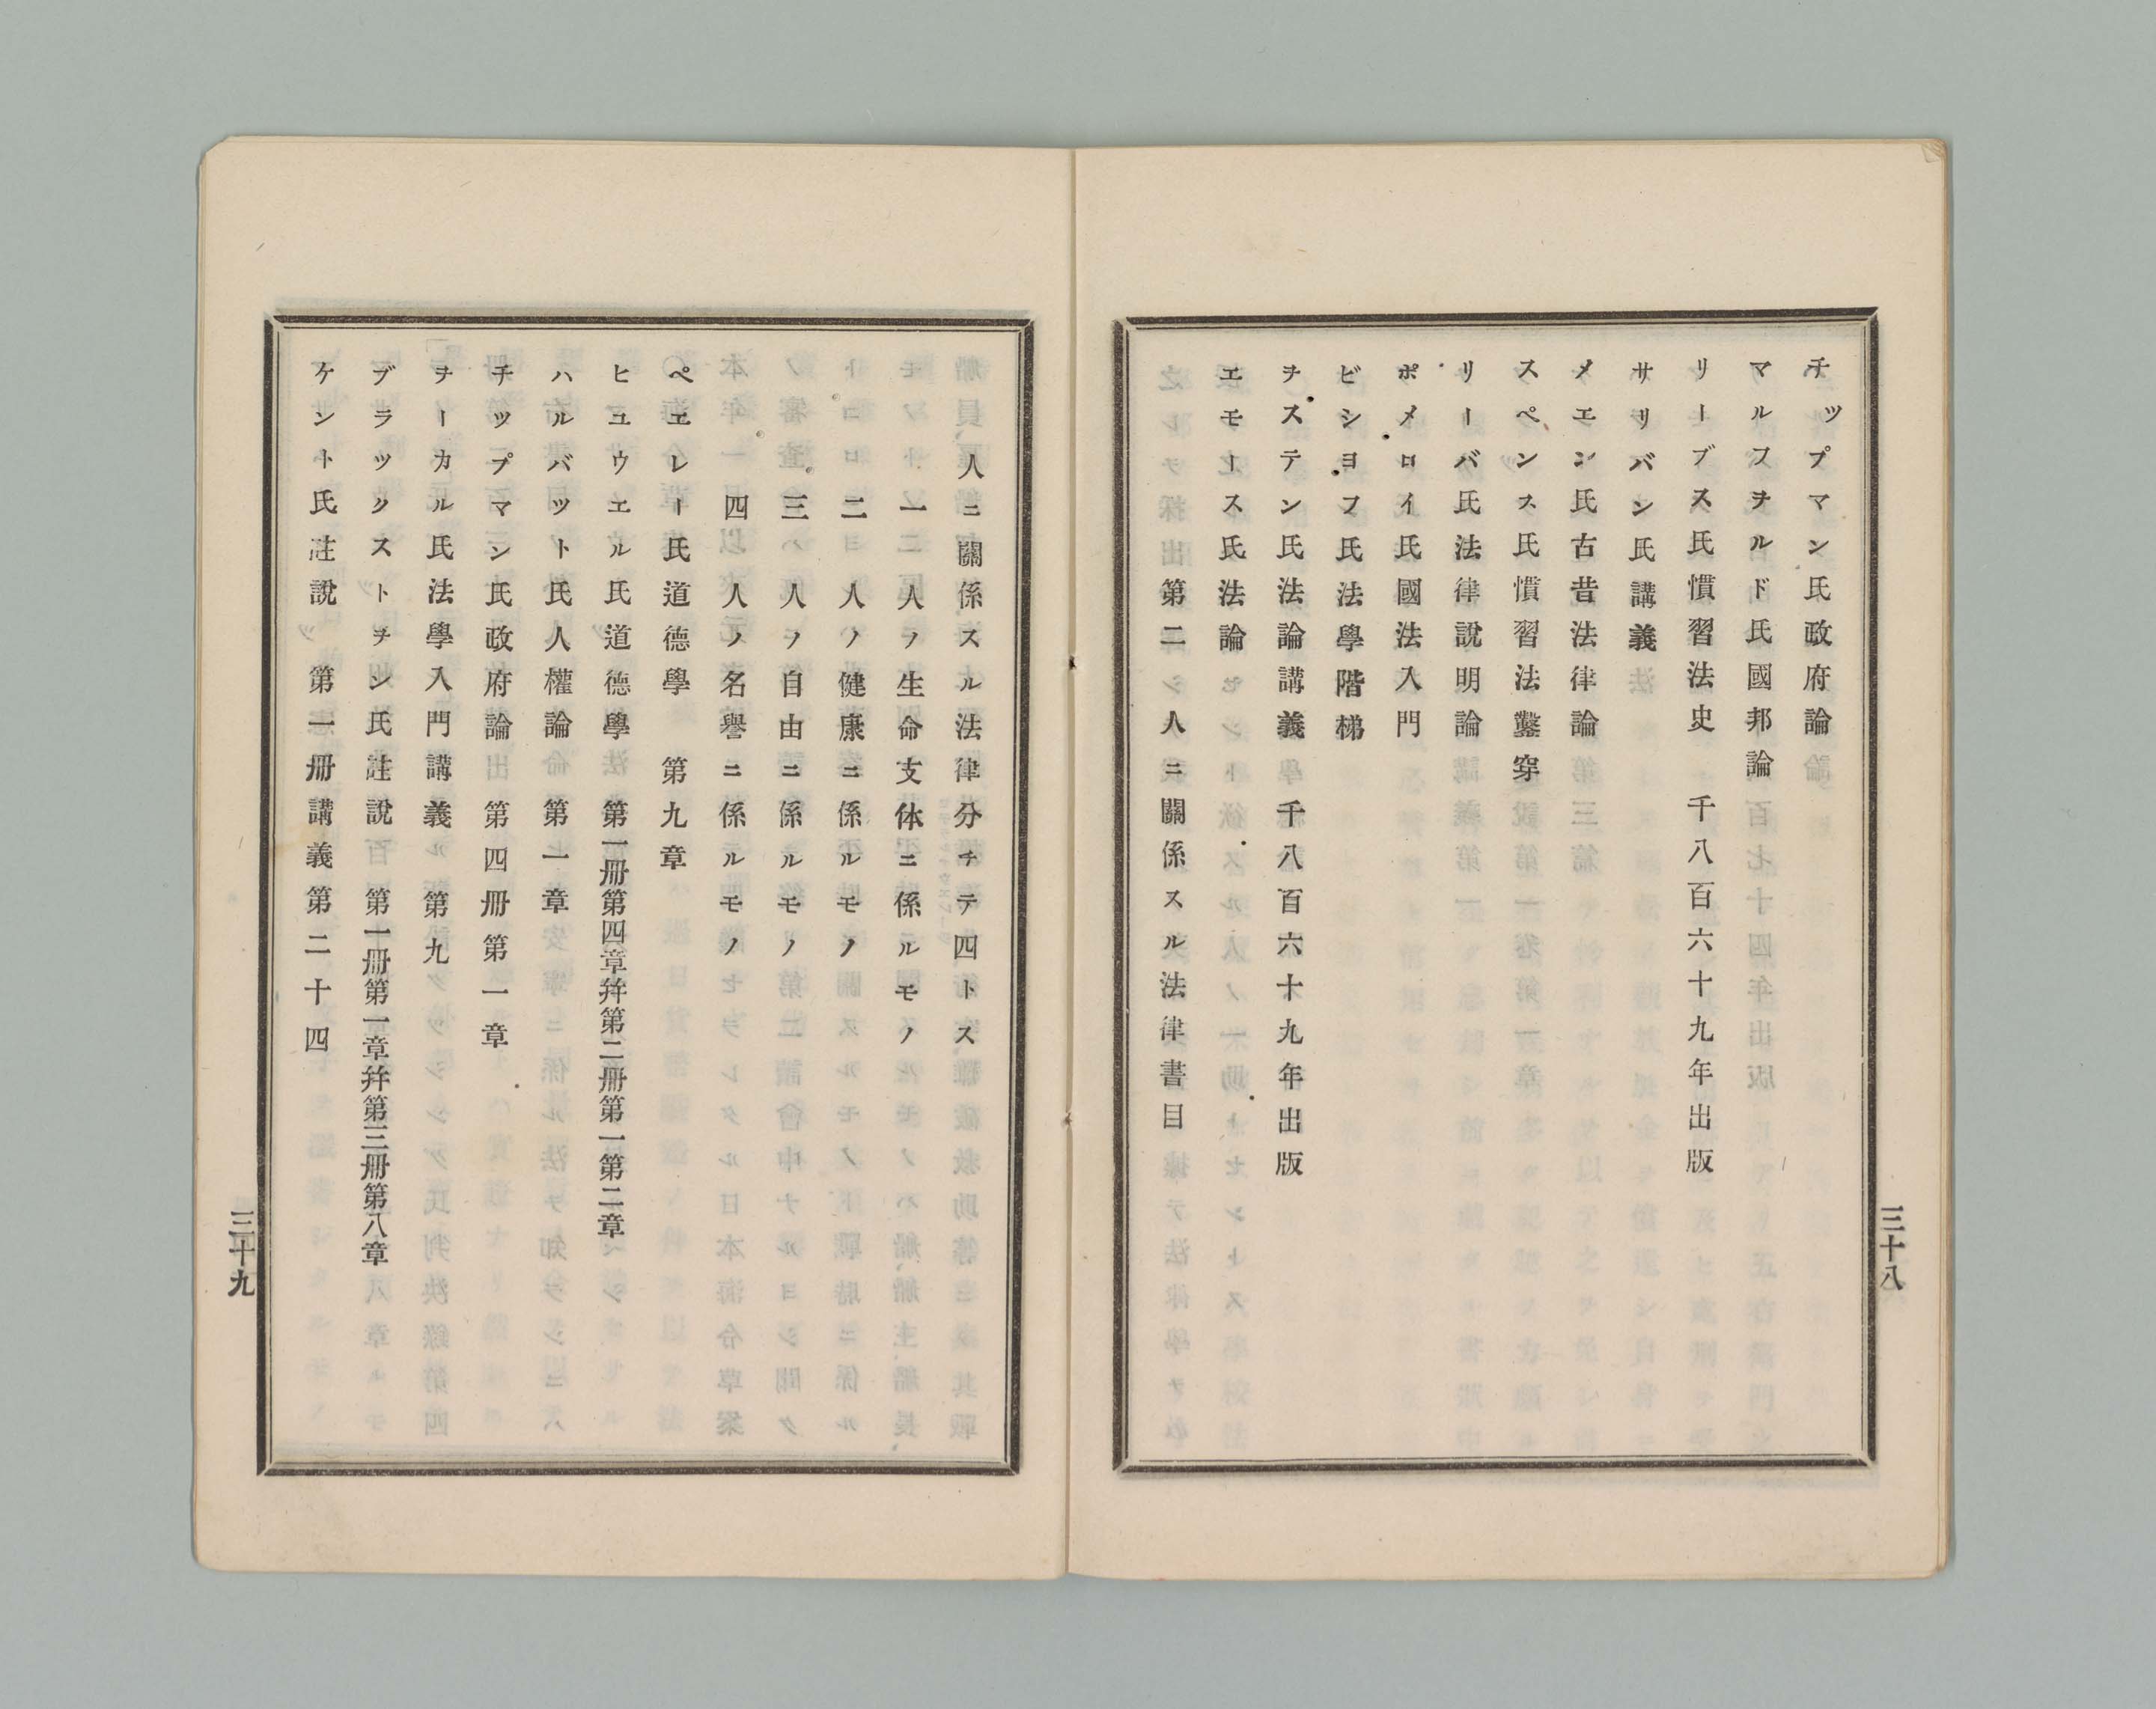 チップマン氏政府論
マルフヲルド氏國邦論
リーブス氏慣習法史　千八百六十九年出版
サリバン氏講義
メエン氏古昔法律論
スペンス氏慣習法鑿穿
リーバ氏法律說明論
ポメロイ氏國法入門
ビシヨフ氏法學階梯
ヲステン氏法論講義　千八百六十九年出版
エモース氏法論
第二　人ニ關係スル法律書目
三十八
人ニ關係スル法律分チテ四トス
一　人ノ生命支体ニ係ルモノ
二　人ノ健康ニ係ルモノ
三　人ノ自由ニ係ルモノ
四　人ノ名譽ニ係ルモノ
ペエレー氏道德學　第九章
ヒユウエル氏道德學　第一册第四章幷第二册第一第二章
ハルバツト氏人權論　第一章
チツプマン氏政府論　第四册第一章
ヲーカル氏法學入門講義　第九
ブラツクストヂン氏註說　第一册第一章幷第三册第八章
ケント氏註說　第一册講義第二十四
三十九